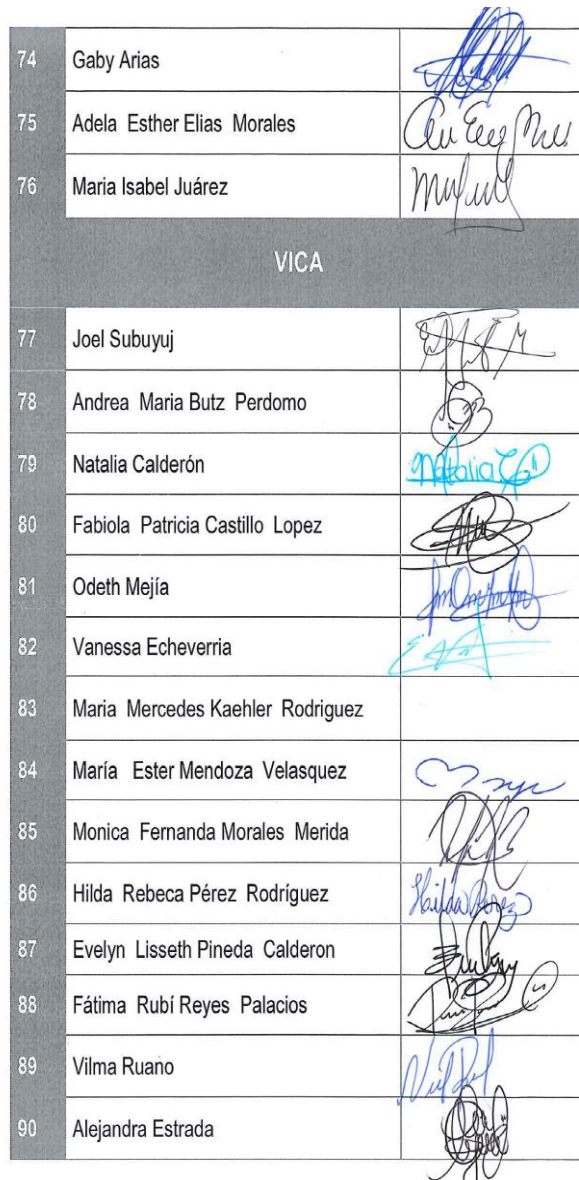 74 Gaby Arias
75 Adela Esther Elias Morales
76 Maria Isabel Juárez
VICA
77 Joel Subuyuj
78 Andrea Maria Butz Perdomo
79 Natalia Calderón Natalia
80 Fabiola Patricia Castillo Lopez
81 Odeth Mejía
82 Vanessa Echeverria
83 Maria Mercedes Kaehler Rodriguez
84 María Ester Mendoza Velasquez
85 Monica Fernanda Morales Merida
86 Hilda Rebeca Pérez Rodríguez Hilda Perez
87 Evelyn Lisseth Pineda Calderon
88 Fátima Rubí Reyes Palacios
89 Vilma Ruano
90 Alejandra Estrada